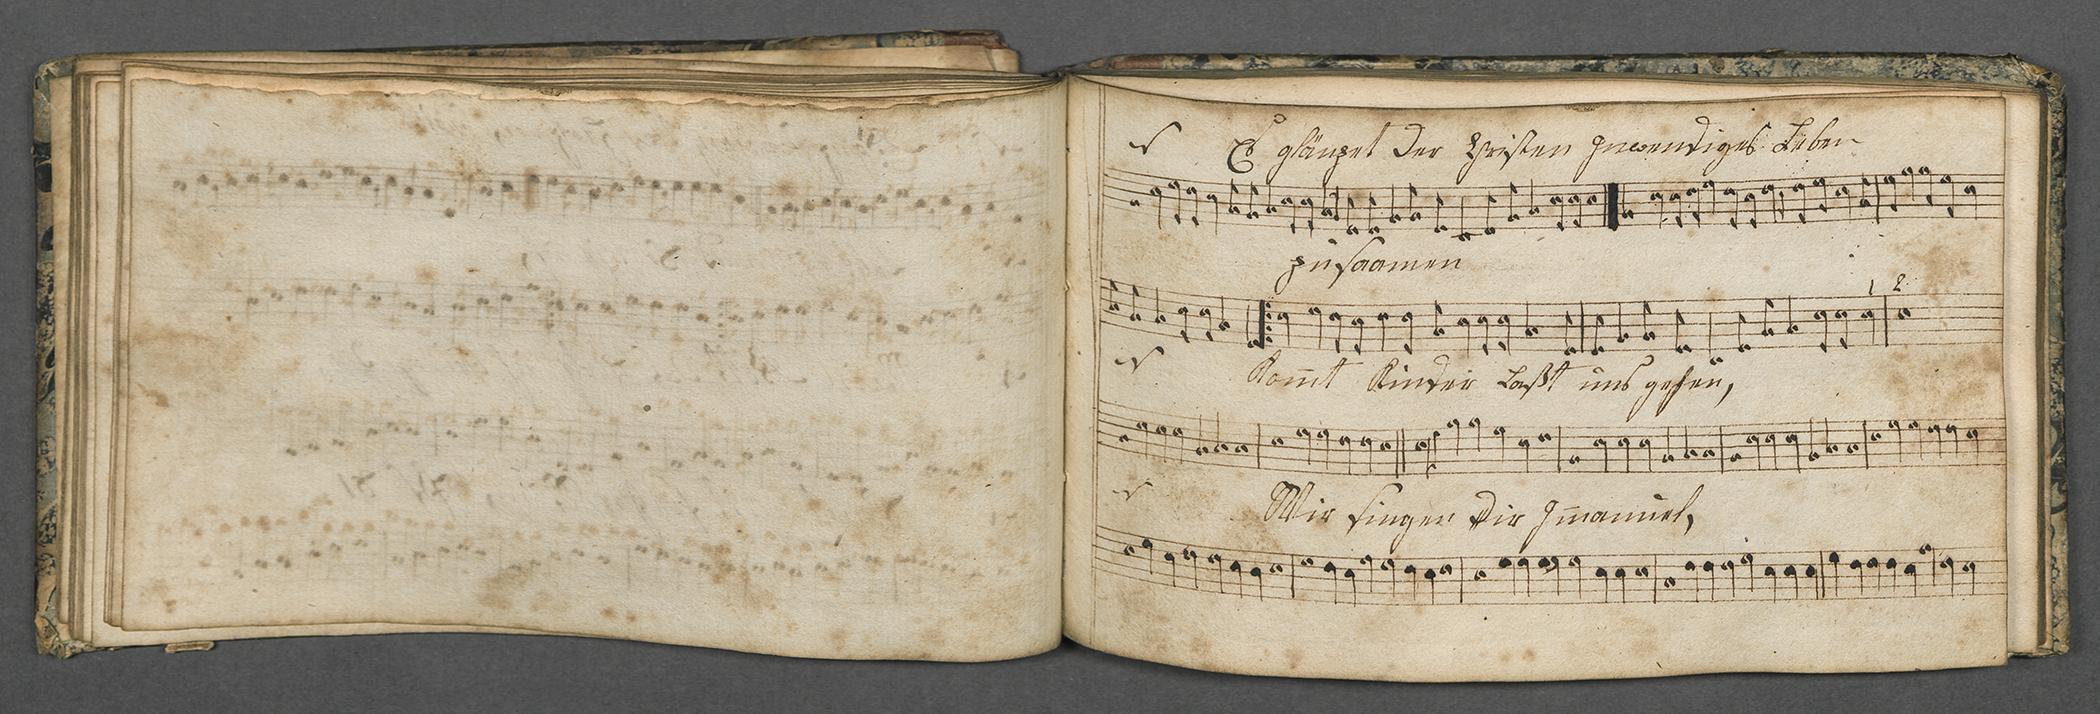 Es glänzet der Christen Inwendiges Leben
zusaamen
1 2
Kom̅t Kinder Laßt uns gehen,
Wir singen dir Im̅anuel,